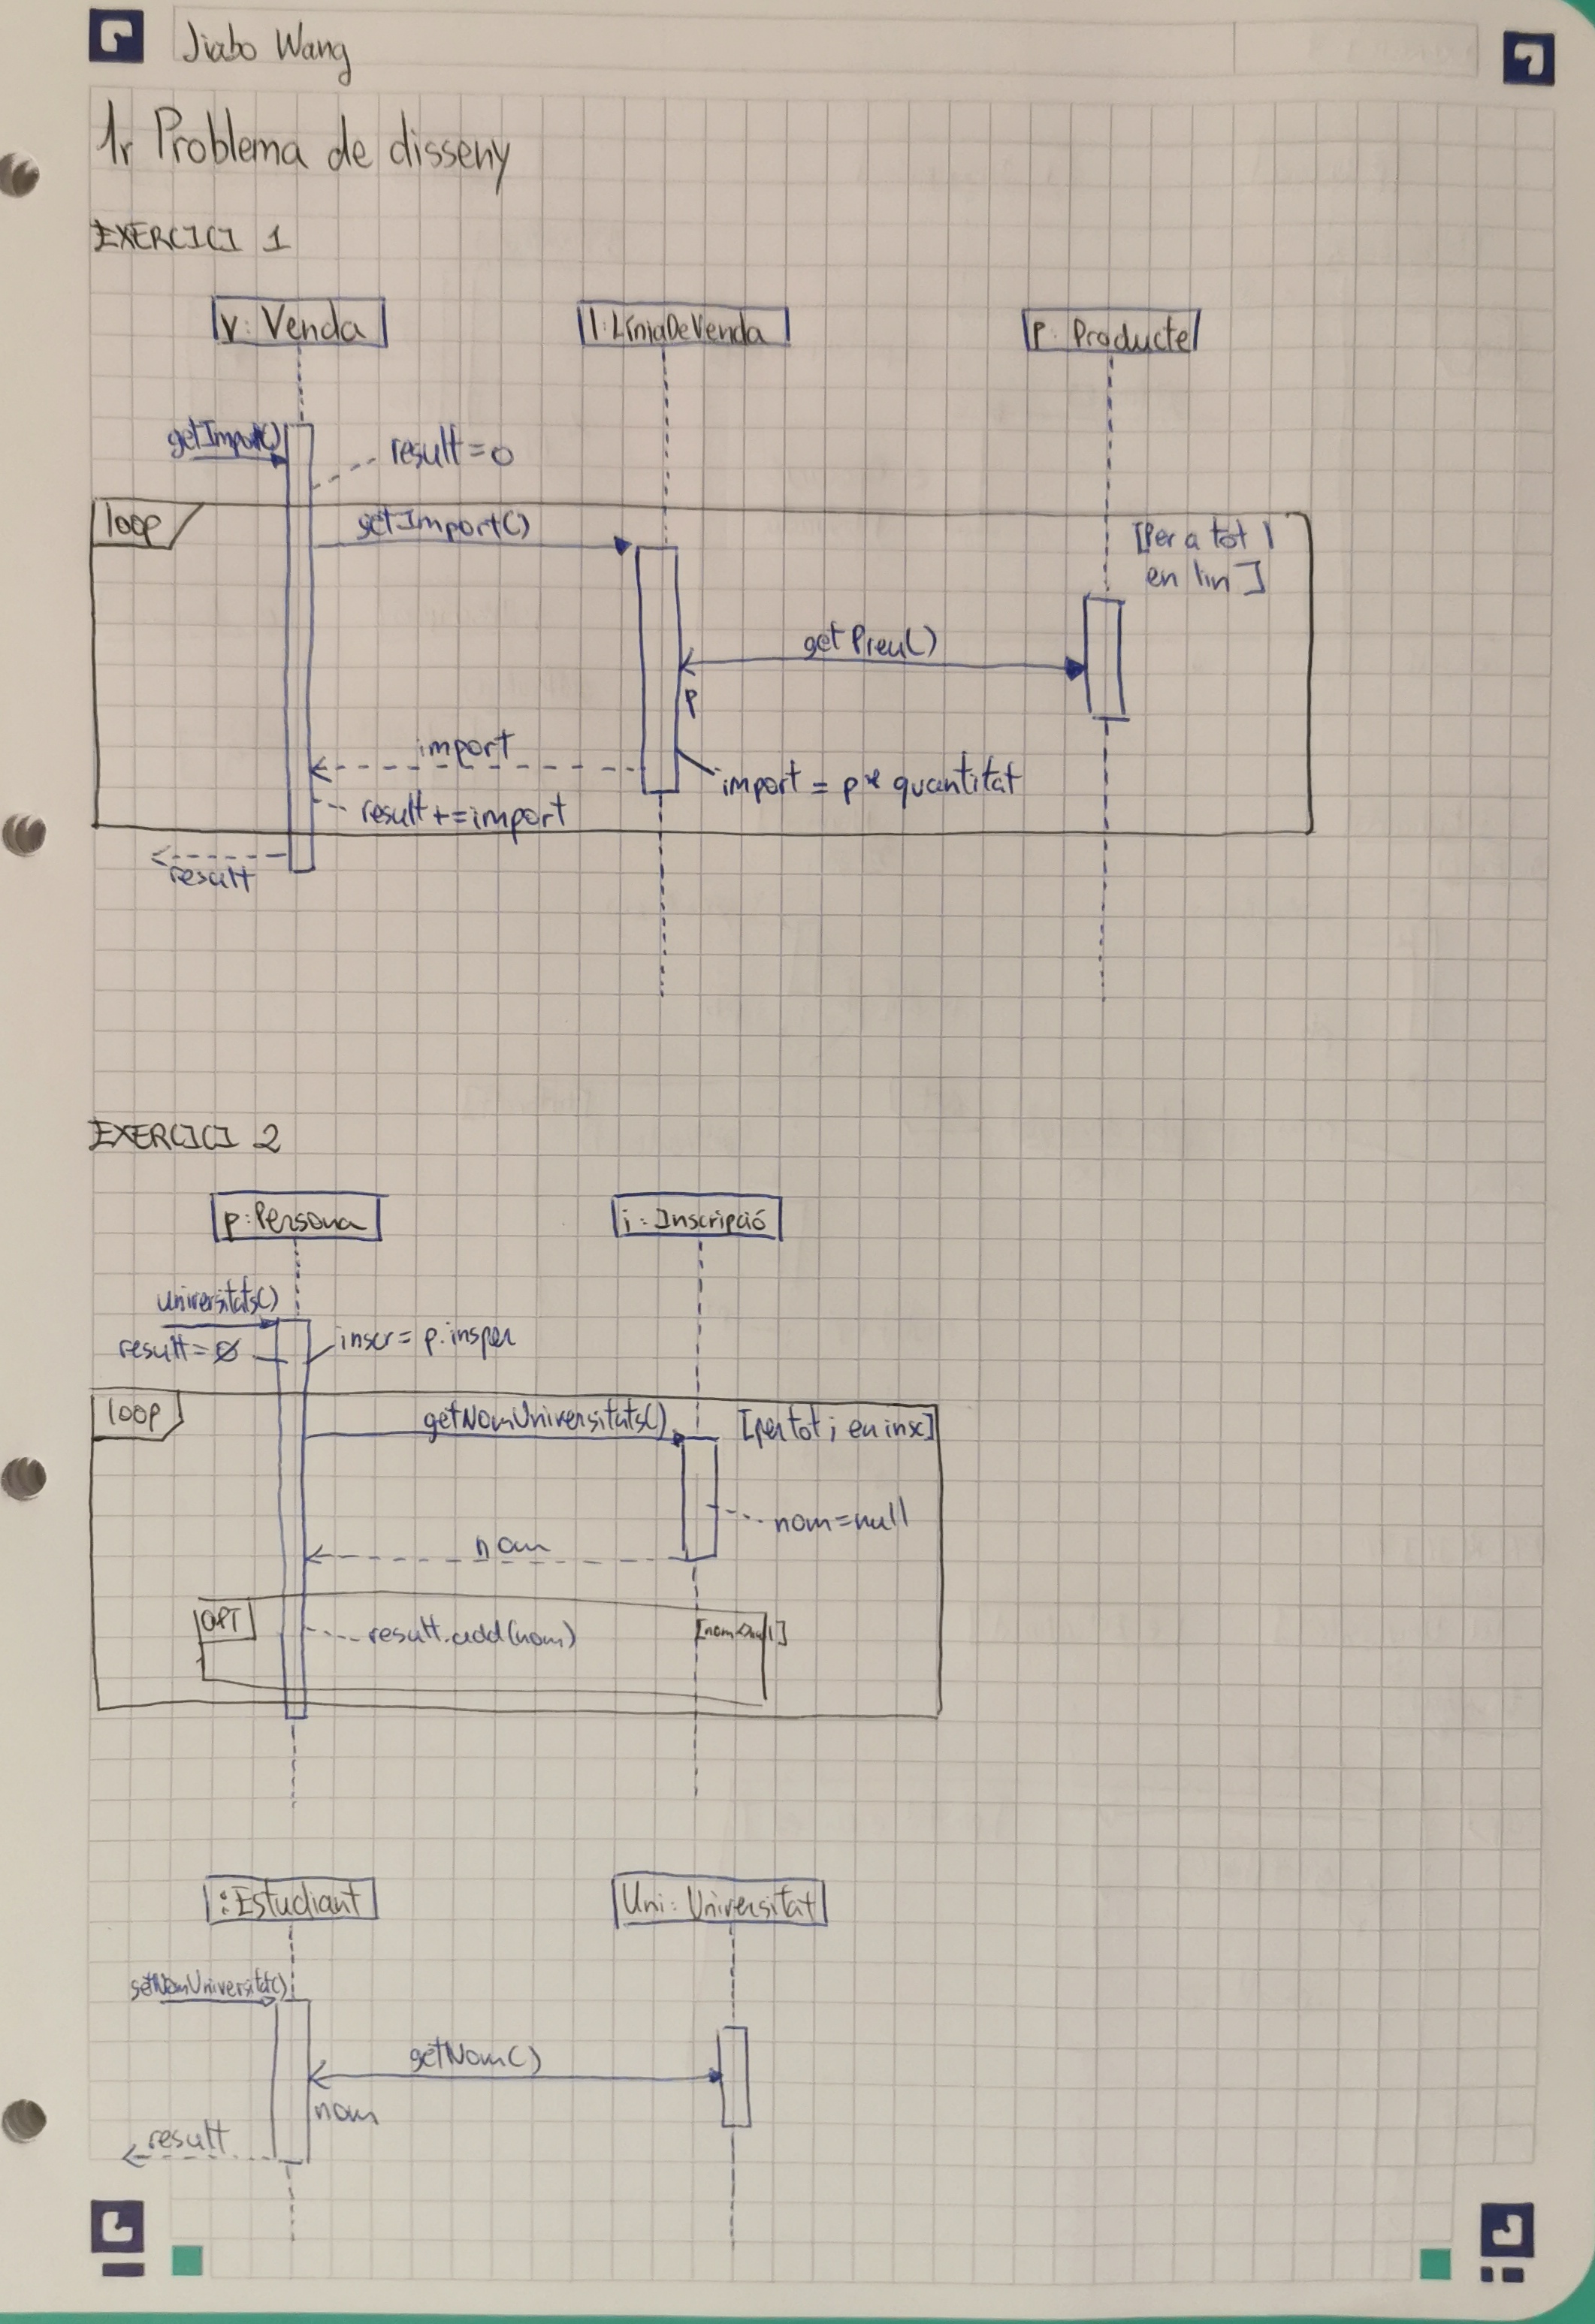 Jiabo Wang
1r Problema de disseny
EXERCICI 1
v: Venda
l: LíniaDeVenda
p: Producte
getImport()
result = 0
loop
getImport()
[Per a tot l
en lin]
getPreu()
p
import
import = p * quantitat
result += import
result
EXERCICI 2
p: Persona
i: Inscripció
universitats()
result = Ø
inscr = p.insper
loop
getNomUniversitats()
[per tot i en insc]
nom = null
nom
OPT
result.add(nom)
[nom<>null]
:Estudiant
Uni: Universitat
getNomUniversitat()
getNom()
nom
result